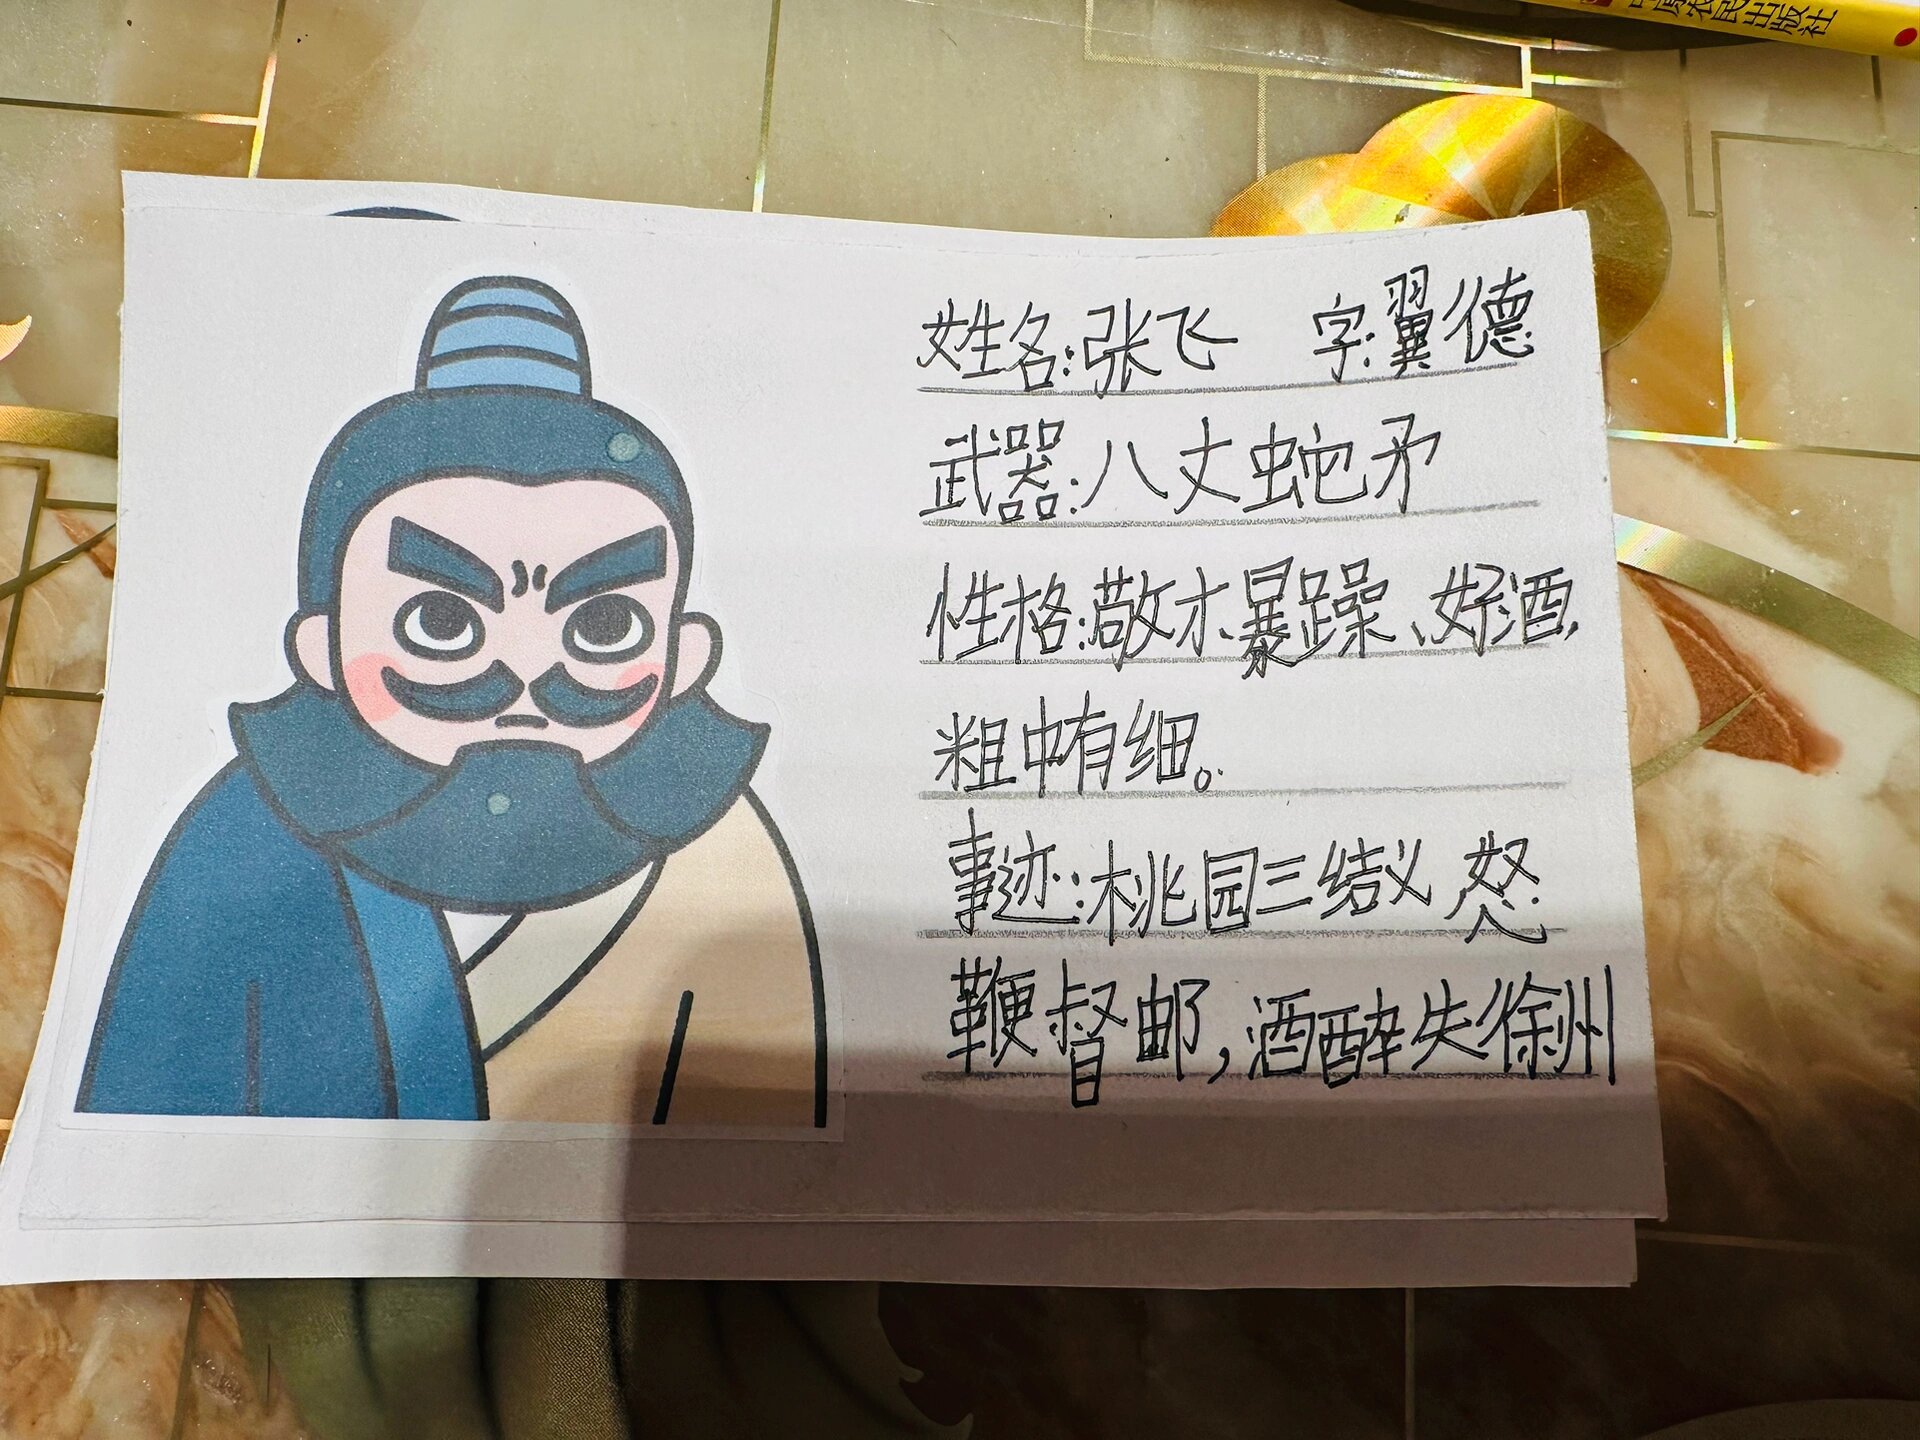 中国农民出版社
姓名:张飞 字:翼德
武器:八丈蛇矛
性格:敬才、暴躁、好酒,
粗中有细。
事迹:桃园三结义 怒
鞭督邮,酒醉失徐州